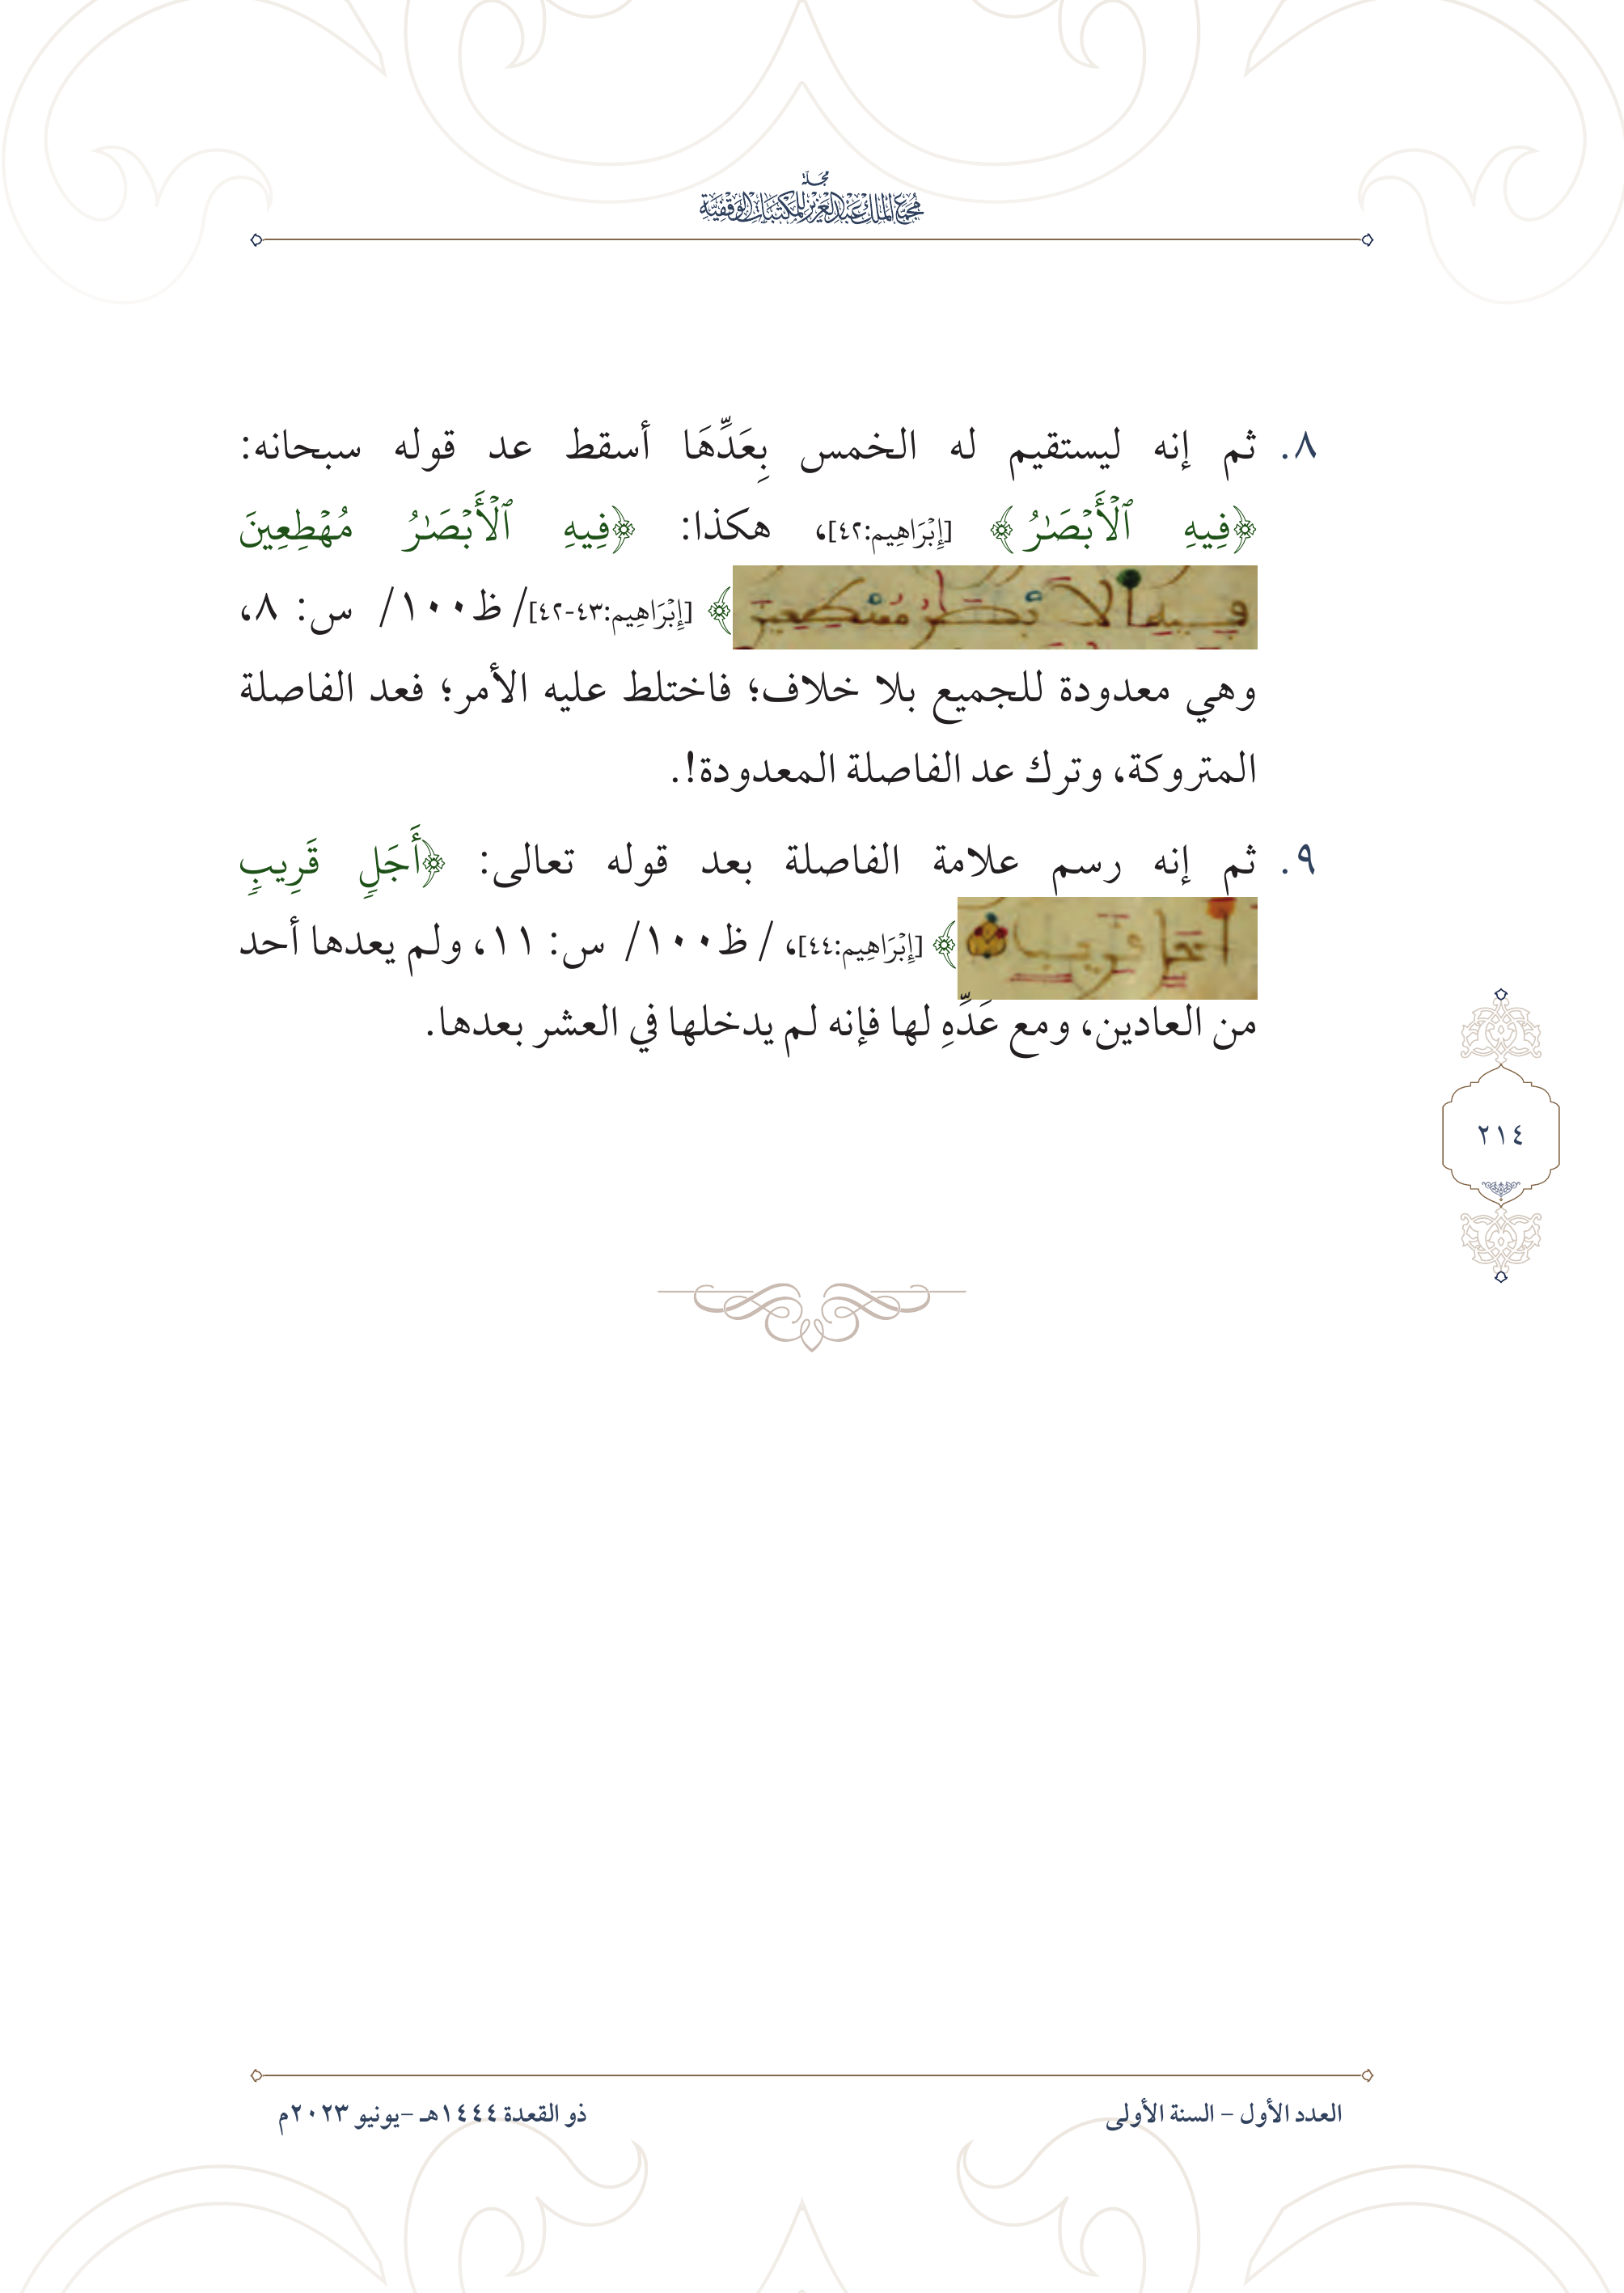 مجلة
مجمع الملك عبدالعزيز للمكتبات الوقفية
٨. ثم إنه ليستقيم له الخمس بِعَدِّهَا أسقط عد قوله سبحانه:
﴿فِيهِ ٱلْأَبْصَٰرُ﴾ [إِبْرَاهِيم:٤٢]، هكذا: ﴿فِيهِ ٱلْأَبْصَٰرُ مُهْطِعِينَ
فيه الابصر مهطعين ﴾ [إِبْرَاهِيم:٤٣-٤٢]/ ظ١٠٠/ س: ٨،
وهي معدودة للجميع بلا خلاف؛ فاختلط عليه الأمر؛ فعد الفاصلة
المتروكة، وترك عد الفاصلة المعدودة!.
٩. ثم إنه رسم علامة الفاصلة بعد قوله تعالى: ﴿أَجَلٖ قَرِيبٖ
اجل قريب ﴾ [إِبْرَاهِيم:٤٤]، / ظ١٠٠/ س: ١١، ولم يعدها أحد
من العادين، ومع عَدِّهِ لها فإنه لم يدخلها في العشر بعدها.
٢١٤
العدد الأول – السنة الأولى
ذو القعدة ١٤٤٤هـ –يونيو ٢٠٢٣م